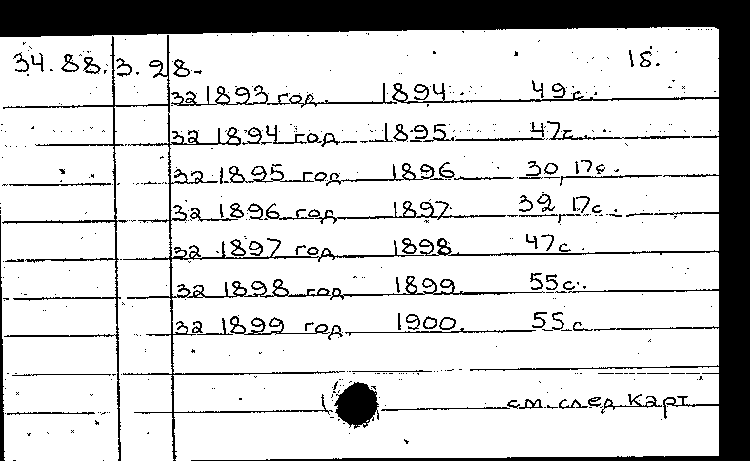 34.88.3.28. 18.
за 1893 год. 1894 49с.
за 1894 год 1895. 47с.
за 1895 год 1896 30, 17с.
за 1896 год 1897 32, 17с.
за 1897 год 1898 47с
за 1898 год 1899 55с.
за 1899 год. 1900. 55с
см. след карт.